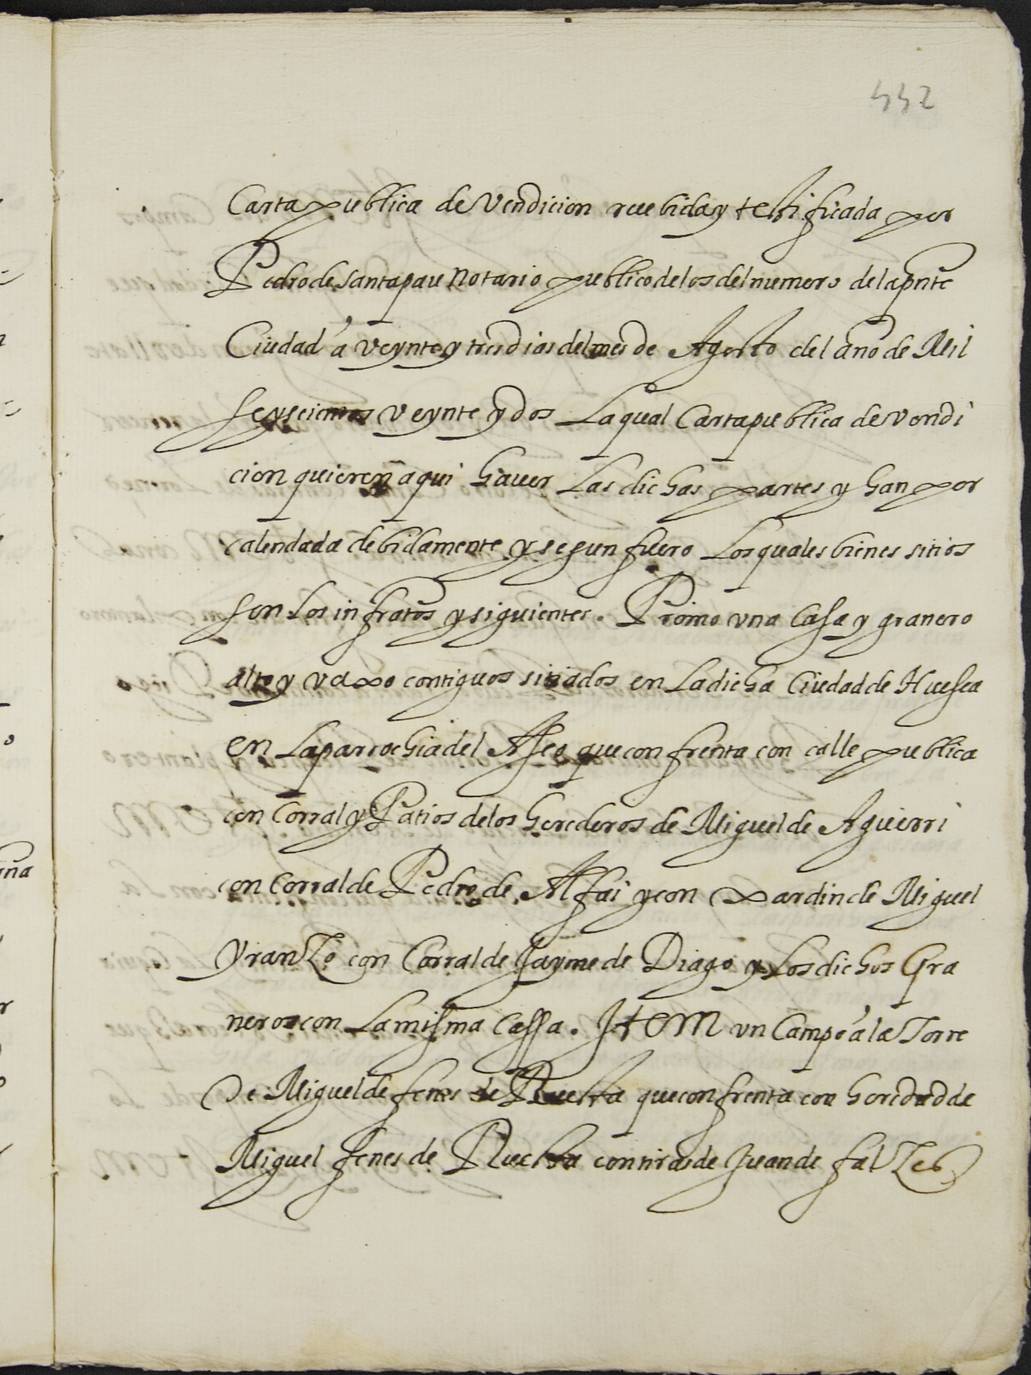 442
Carta publica de Vendicion recebida y testificada por
Pedro de Santapau Notario publico de los del numero de la pnte
Ciudad á veynte y tres dias del mes de Agosto del año de Mil
Seyscientos veynte y dos La qual Carta publica de vendi
cion quieren aqui haver Las dichas partes y han por
calendada debidamente y segun fuero Los quales bienes sitios
son Los infratos y siguientes. Primo vna Casa y granero
alto y vaxo contiguos sitiados en La dicha Ciudad de Huesca
en La parrochia del Aseo que confrenta con calle publica
con Corral y Patios de los herederos de Miguel de Aguerri
con Corral de Pedro de Alfai y con xardin de Miguel
Vranzo con Corral de Jayme de Diago y Los dichos Gra
neros con La misma Cassa. Item vn Campo á la Torre
De Miguel de fenes de que confrenta con heredad de
Miguel fenes de con tiras de Juan de falzes